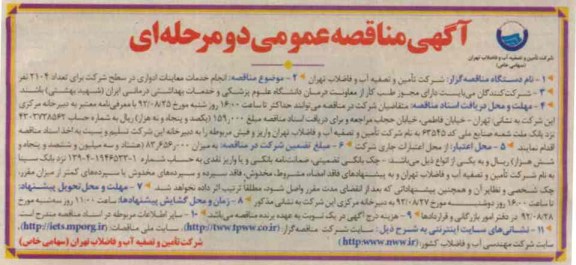 آگهی مناقصه عمومی دو مرحله‌ای
شرکت تأمین و تصفیه آب و فاضلاب تهران
(سهامی خاص)
۱- نام دستگاه مناقصه‌گزار: شرکت تأمین و تصفیه آب و فاضلاب تهران ۲- موضوع مناقصه: انجام خدمات معاینات ادواری در سطح شرکت برای تعداد ۲۱۰۴ نفر
۳- شرکت‌کنندگان می‌بایست دارای مجوز طب کار از معاونت درمان دانشگاه علوم پزشکی و خدمات بهداشتی درمانی ایران (شهید بهشتی) باشند.
۴- مهلت و محل دریافت اسناد مناقصه: متقاضیان شرکت در مناقصه می‌توانند حداکثر تا ساعت ۱۶:۰۰ روز شنبه مورخ ۹۲/۰۸/۲۵ با معرفی‌نامه معتبر به دبیرخانه مرکزی
این شرکت به نشانی: تهران - خیابان فاطمی، خیابان حجاب مراجعه و برای دریافت اسناد مناقصه مبلغ ۱۵۹٬۰۰۰ (یکصد و پنجاه و نه هزار) ریال به شماره حساب
نزد بانک ملت شعبه صنایع ملی کد ۶۳۵۴۵ به نام شرکت تأمین و تصفیه آب و فاضلاب تهران واریز و فیش مربوطه را به دبیرخانه این شرکت تسلیم و نسبت به اخذ اسناد مناقصه
اقدام نمایند ۵- محل اعتبار: از محل اعتبارات جاری شرکت ۶- مبلغ تضمین شرکت در مناقصه: به میزان ۸۳٬۶۵۶٬۰۰۰ (هشتاد و سه میلیون و ششصد و پنجاه و
شش هزار) ریال و به یکی از انواع ذیل می‌باشد: - چک بانکی تضمینی، ضمانت‌نامه بانکی و یا واریز نقدی به حساب شماره نزد بانک سینا
به نام شرکت تأمین و تصفیه آب و فاضلاب تهران و به پیشنهادهای فاقد امضاء، مشروط، مخدوش، فاقد سپرده و سپرده‌های مخدوش یا سپرده‌های کمتر از میزان مقرر،
چک شخصی و نظایر آن و همچنین پیشنهاداتی که بعد از انقضای مدت مقرر واصل شود، مطلقاً ترتیب اثر داده نخواهد شد. ۷- مهلت و محل تحویل پیشنهاد:
تا ساعت ۱۶:۰۰ روز دوشنبه مورخ ۹۲/۰۸/۲۷ به دبیرخانه مرکزی این شرکت به نشانی مذکور ۸- زمان و محل گشایش پیشنهادها: ساعت ۱۱:۰۰ روز سه‌شنبه مورخ
۹۲/۰۸/۲۸ در دفتر امور بازرگانی و قراردادها ۹- هزینه درج آگهی در یک نوبت به عهده برنده مناقصه می‌باشد ۱۰- سایر اطلاعات مربوطه در اسناد مناقصه مندرج است
۱۱- نشانی‌های سایت اینترنتی به شرح ذیل: سایت شرکت مناقصه‌گزار (http://www.tpww.co.ir)، سایت ملی مناقصات (http://iets.mporg.ir)،
سایت شرکت مهندسی آب و فاضلاب کشور: (http:www.nww.ir)
شرکت تأمین و تصفیه آب و فاضلاب تهران (سهامی خاص)